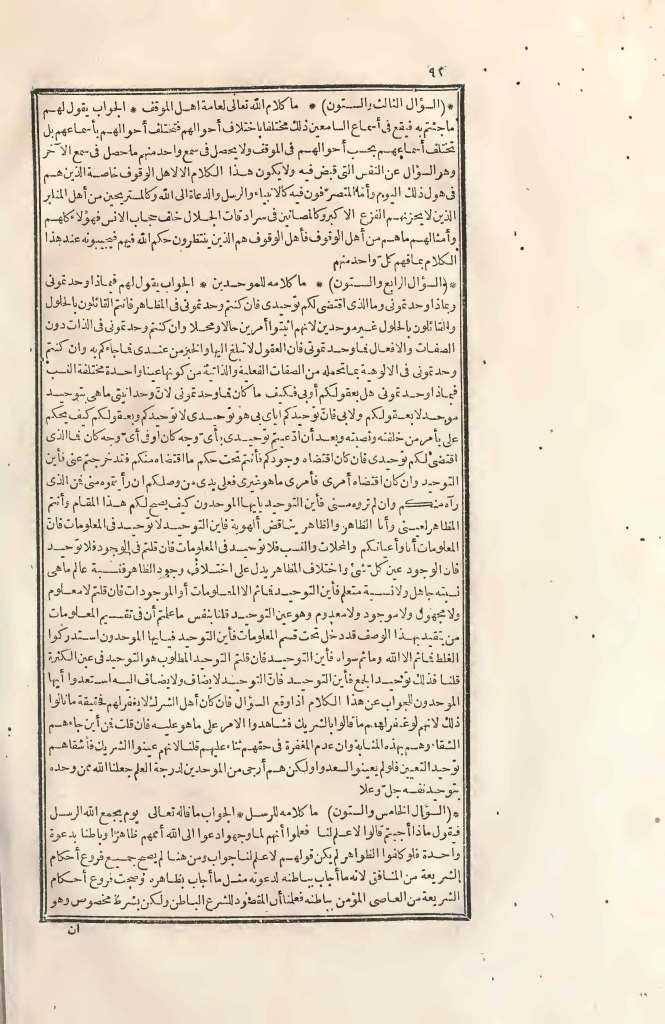 ٩٢
* (السؤال الثالث والستون) * ما كلام الله تعالى لعامة اهل الموقف * الجواب يقول لهم
ما جئتم به فيقع فى أسماع السامعين ذلك مختلفا باختلاف أحوالهم فتختلف أحوالهم بأسماعهم بل
تختلف أسماعهم بحسب أحوالهم فى الموقف ولا يحصل فى سمع واحد منهم ما حصل فى سمع الآخر
وهو السؤال عن النفس التى قبض فيه ولا يكون هذا الكلام الا لاهل الوقوف خاصة الذين هم
فى هول ذلك اليوم وأما المتصرفون فيه كالانبياء والرسل والدعاة الى الله وكالمستريحين من أهل المنابر
الذين لا يحزنهم الفزع الاكبر وكالمصانين فى سرادقات الجلال خلف حجاب الانس فهؤلاء كلهم
وأمثالهم ما هم من أهل الوقوف فأهل الوقوف هم الذين ينتظرون حكم الله فيهم فيجيبونه عند هذا
الكلام بما فهم كل واحد منهم
* (السؤال الرابع والستون) * ما كلامه للموحدين * الجواب يقول لهم فيماذا وحدتمونى
وبماذا وحدتمونى وما الذى اقتضى لكم توحيدى فان كنتم وحدتمونى فى المظاهر فأنتم القائلون بالحلول
والقائلون بالحلول غير موحدين لانهم اثبتوا أمرين حالا ومحلا وان كنتم وحدتمونى فى الذات دون
الصفات والافعال فما وحدتمونى فان العقول لا تبلغ اليها والخبر من عندى فما جاءكم به وان كنتم
وحدتمونى فى الالوهية بما تحمله من الصفات الفعلية والذاتية من كونها عينا واحدة مختلفة النسب
فبماذا وحدتمونى هل بعقولكم أو بى فكيف ما كان فما وحدتمونى لان وحدانيتى ما هى بتوحيد
موحد لا بعقولكم ولا بى فان توحيدكم اياى بى هو توحيدى لا توحيدكم وبعقولكم كيف يحكم
على بأمر من خلقته ونصبته وبعد أن ادعيتم توحيدى بأى وجه كان أوفى أى وجه كان فما الذى
اقتضى لكم توحيدى فان كان اقتضاه وجودكم فأنتم تحت حكم ما اقتضاه منكم فقد خرجتم عنى فأين
التوحيد وان كان اقتضاه أمرى فأمرى ما هو غيرى فعلى يدى من وصلكم ان رأيتموه منى فمن الذى
رآه منكم وان لم تروه منى فأين التوحيد يا أيها الموحدون كيف يصح لكم هذا المقام وأنتم
المظاهر لعينى وأنا الظاهر والظاهر يناقض ألهوية فأين التوحيد لا توحيد فى المعلومات فان
المعلومات أنا وأعيانكم والمحالات والنسب فلا توحيد فى المعلومات فان قلتم فى الوجود فلا توحيد
فان الوجود عين كل شئ واختلاف المظاهر يدل على اختلاف وجود الظاهر فنسبة عالم ما هى
نسبته جاهل ولا نسبة متعلم فأين التوحيد فما ثم الا المعلومات أو الموجودات فان قلتم لا معلوم
ولا مجهول ولا موجود ولا معدوم وهو عين التوحيد قلنا بنفس ما علمتم أن فى تقسيم المعلومات
من يتقيد بهذا الوصف فقد دخل تحت قسم المعلومات فأين التوحيد فيا أيها الموحدون استدركوا
الغلط فما ثم الا الله وما ثم سواه فأين التوحيد فان قلتم التوحيد المطلوب هو التوحيد فى عين الكثرة
قلنا فذلك توحيد الجمع فأين التوحيد فان التوحيد لا يضاف ولا يضاف اليه استعدوا أيها
الموحدون للجواب عن هذا الكلام اذا وقع السؤال فان كان أهل الشرك لا يغفر لهم فحقيقة ما نالوا
ذلك لانهم لو غفر لهم ما قالوا بالشريك فشاهدوا الامر على ما هو عليه فان قلت فمن أين جاءهم
الشقاء وهم بهذه المثابة وان عدم المغفرة فى حقهم ثناء عليهم قلنا لانهم عينوا الشريك فأشقاهم
توحيد التعيين فلو لم يعينوا لسعدوا ولكن هم أرجى من الموحدين لدرجة العلم جعلنا الله ممن وحده
بتوحيد نفسه جل وعلا
* (السؤال الخامس والستون) ما كلامه للرسل * الجواب ما قاله تعالى يوم يجمع الله الرسل
فيقول ماذا أجبتم قالوا لا علم لنا فعلموا أنهم لما وجهوا دعوا الى الله أممهم ظاهرا وباطنا بدعوة
واحدة فلو كلفوا الظواهر لم يكن قولهم لا علم لنا جواب ومن هنا لم يصح جميع فروع أحكام
الشريعة من المنافق لانه ما أجاب بباطنه لدعوته مثل ما أجاب بظاهره وصحت فروع أحكام
الشريعة من العاصى المؤمن بباطنه فعلمنا أن المقصود للشرع الباطن ولكن بشرط مخصوص وهو
ان